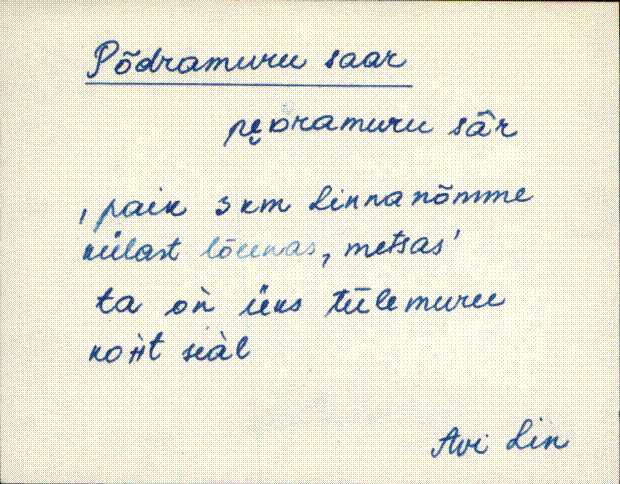 Põdramuru saar
pe̮dramuru sār
, paik 3 km Linnanõmme
külast lõunas, metsas'
ta on üks tülemuru
koht seäl
Avi Lin